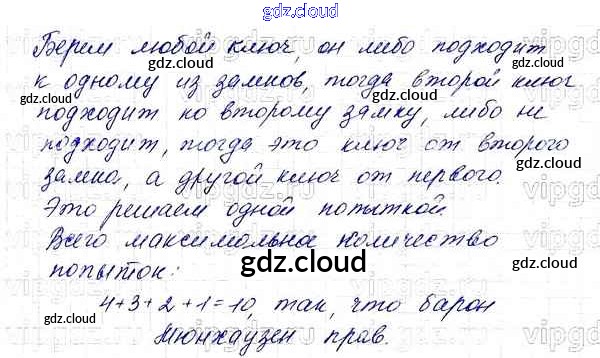 gdz.cloud
Берем любой ключ, он либо подходит
gdz.cloud gdz.cloud
к одному из замков, тогда второй ключ
gdz.cloud
подходит ко второму замку, либо не
подходит, тогда это ключ от второго
gdz.cloud gdz.cloud
замка, а другой ключ от первого.
Это решаем одной попыткой.
gdz.cloud
Всего максимально количество
попыток:
gdz.cloud
4+3+2+1=10, так, что барон
gdz.cloud gdz.cloud
Мюнхаузен прав.